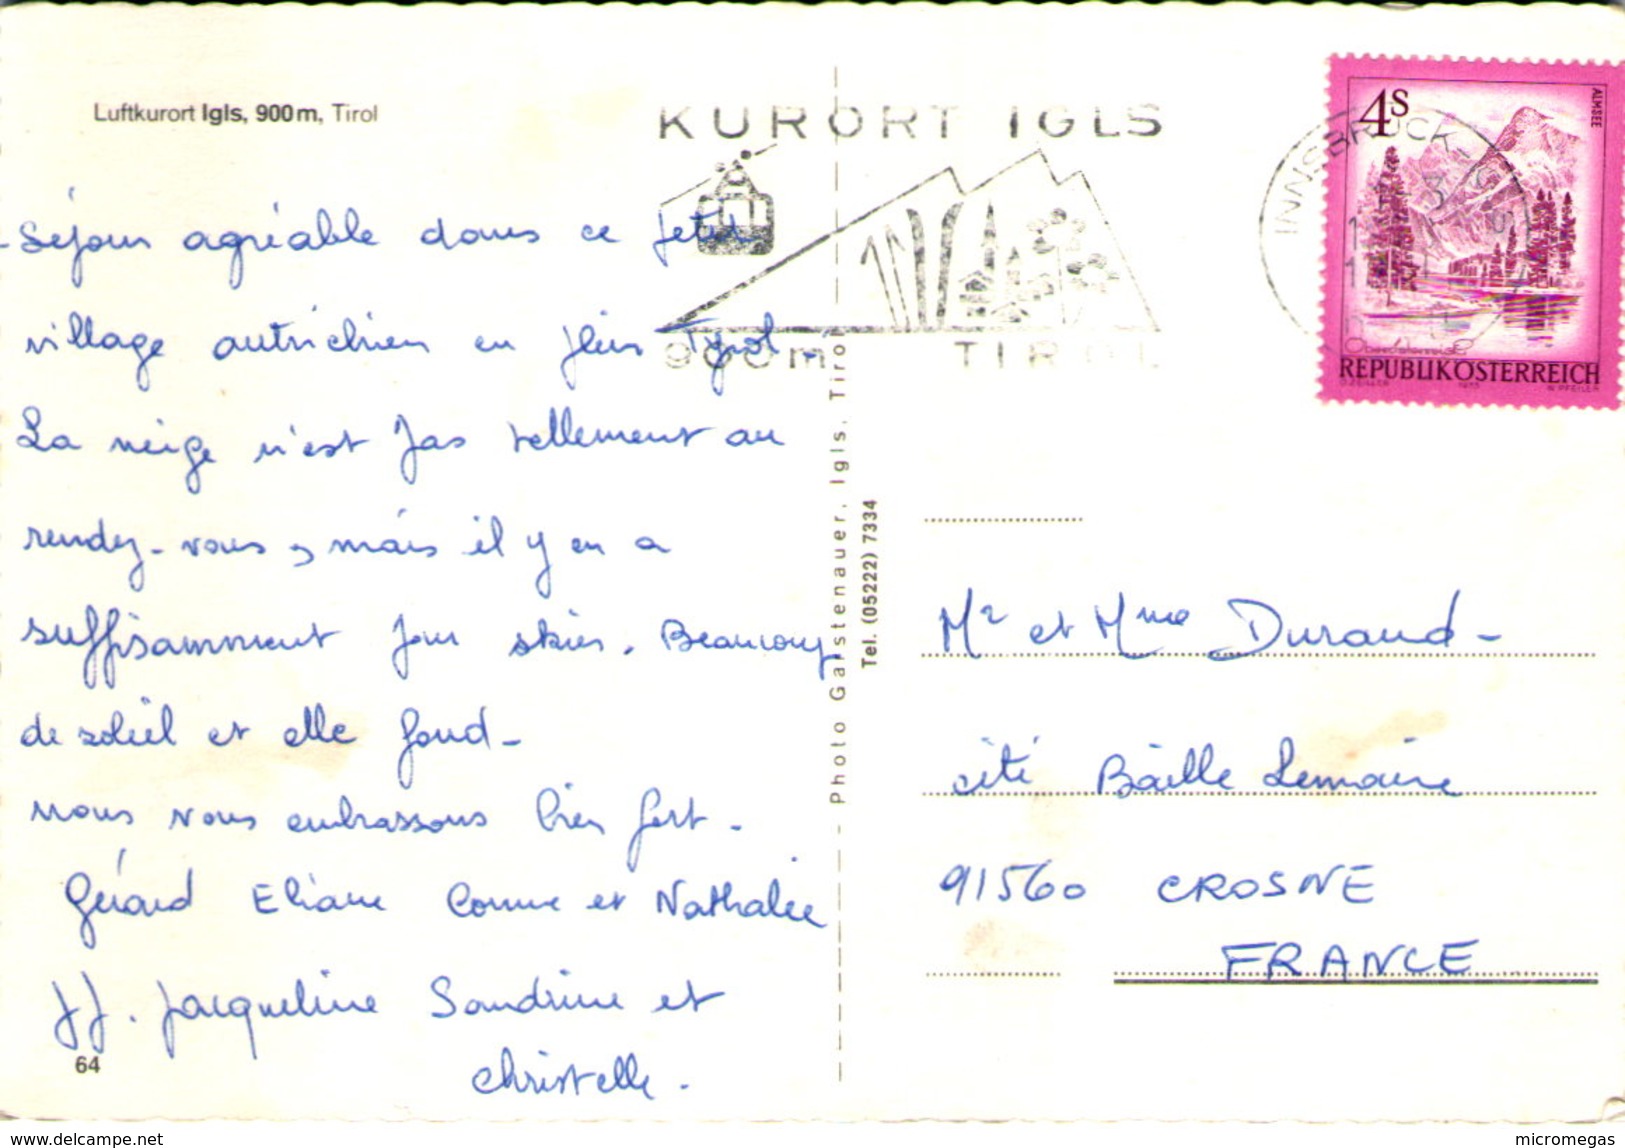 Luftkurort Igls, 900 m, Tirol
KURORT IGLS
900 m TIROL
INNSBRUCK
4S
ALMSEE
REPUBLIK ÖSTERREICH
Séjour agréable dans ce petit
village autrichien en plein Tyrol.
La neige n'est pas tellement au
rendez-vous, mais il y en a
suffisamment pour skier. Beaucoup
de soleil et elle fond-
nous vous embrassons bien fort.
Gérard Eliane Corinne et Nathalie
JJ. Jacqueline Sandrine et
christelle.
64
Photo Garstenauer, Igls, Tirol
Tel. (05222) 7334
Mr et Mme Durand-
cité Baille Lemaire
91560 CROSNE
FRANCE
www.delcampe.net
micromegas